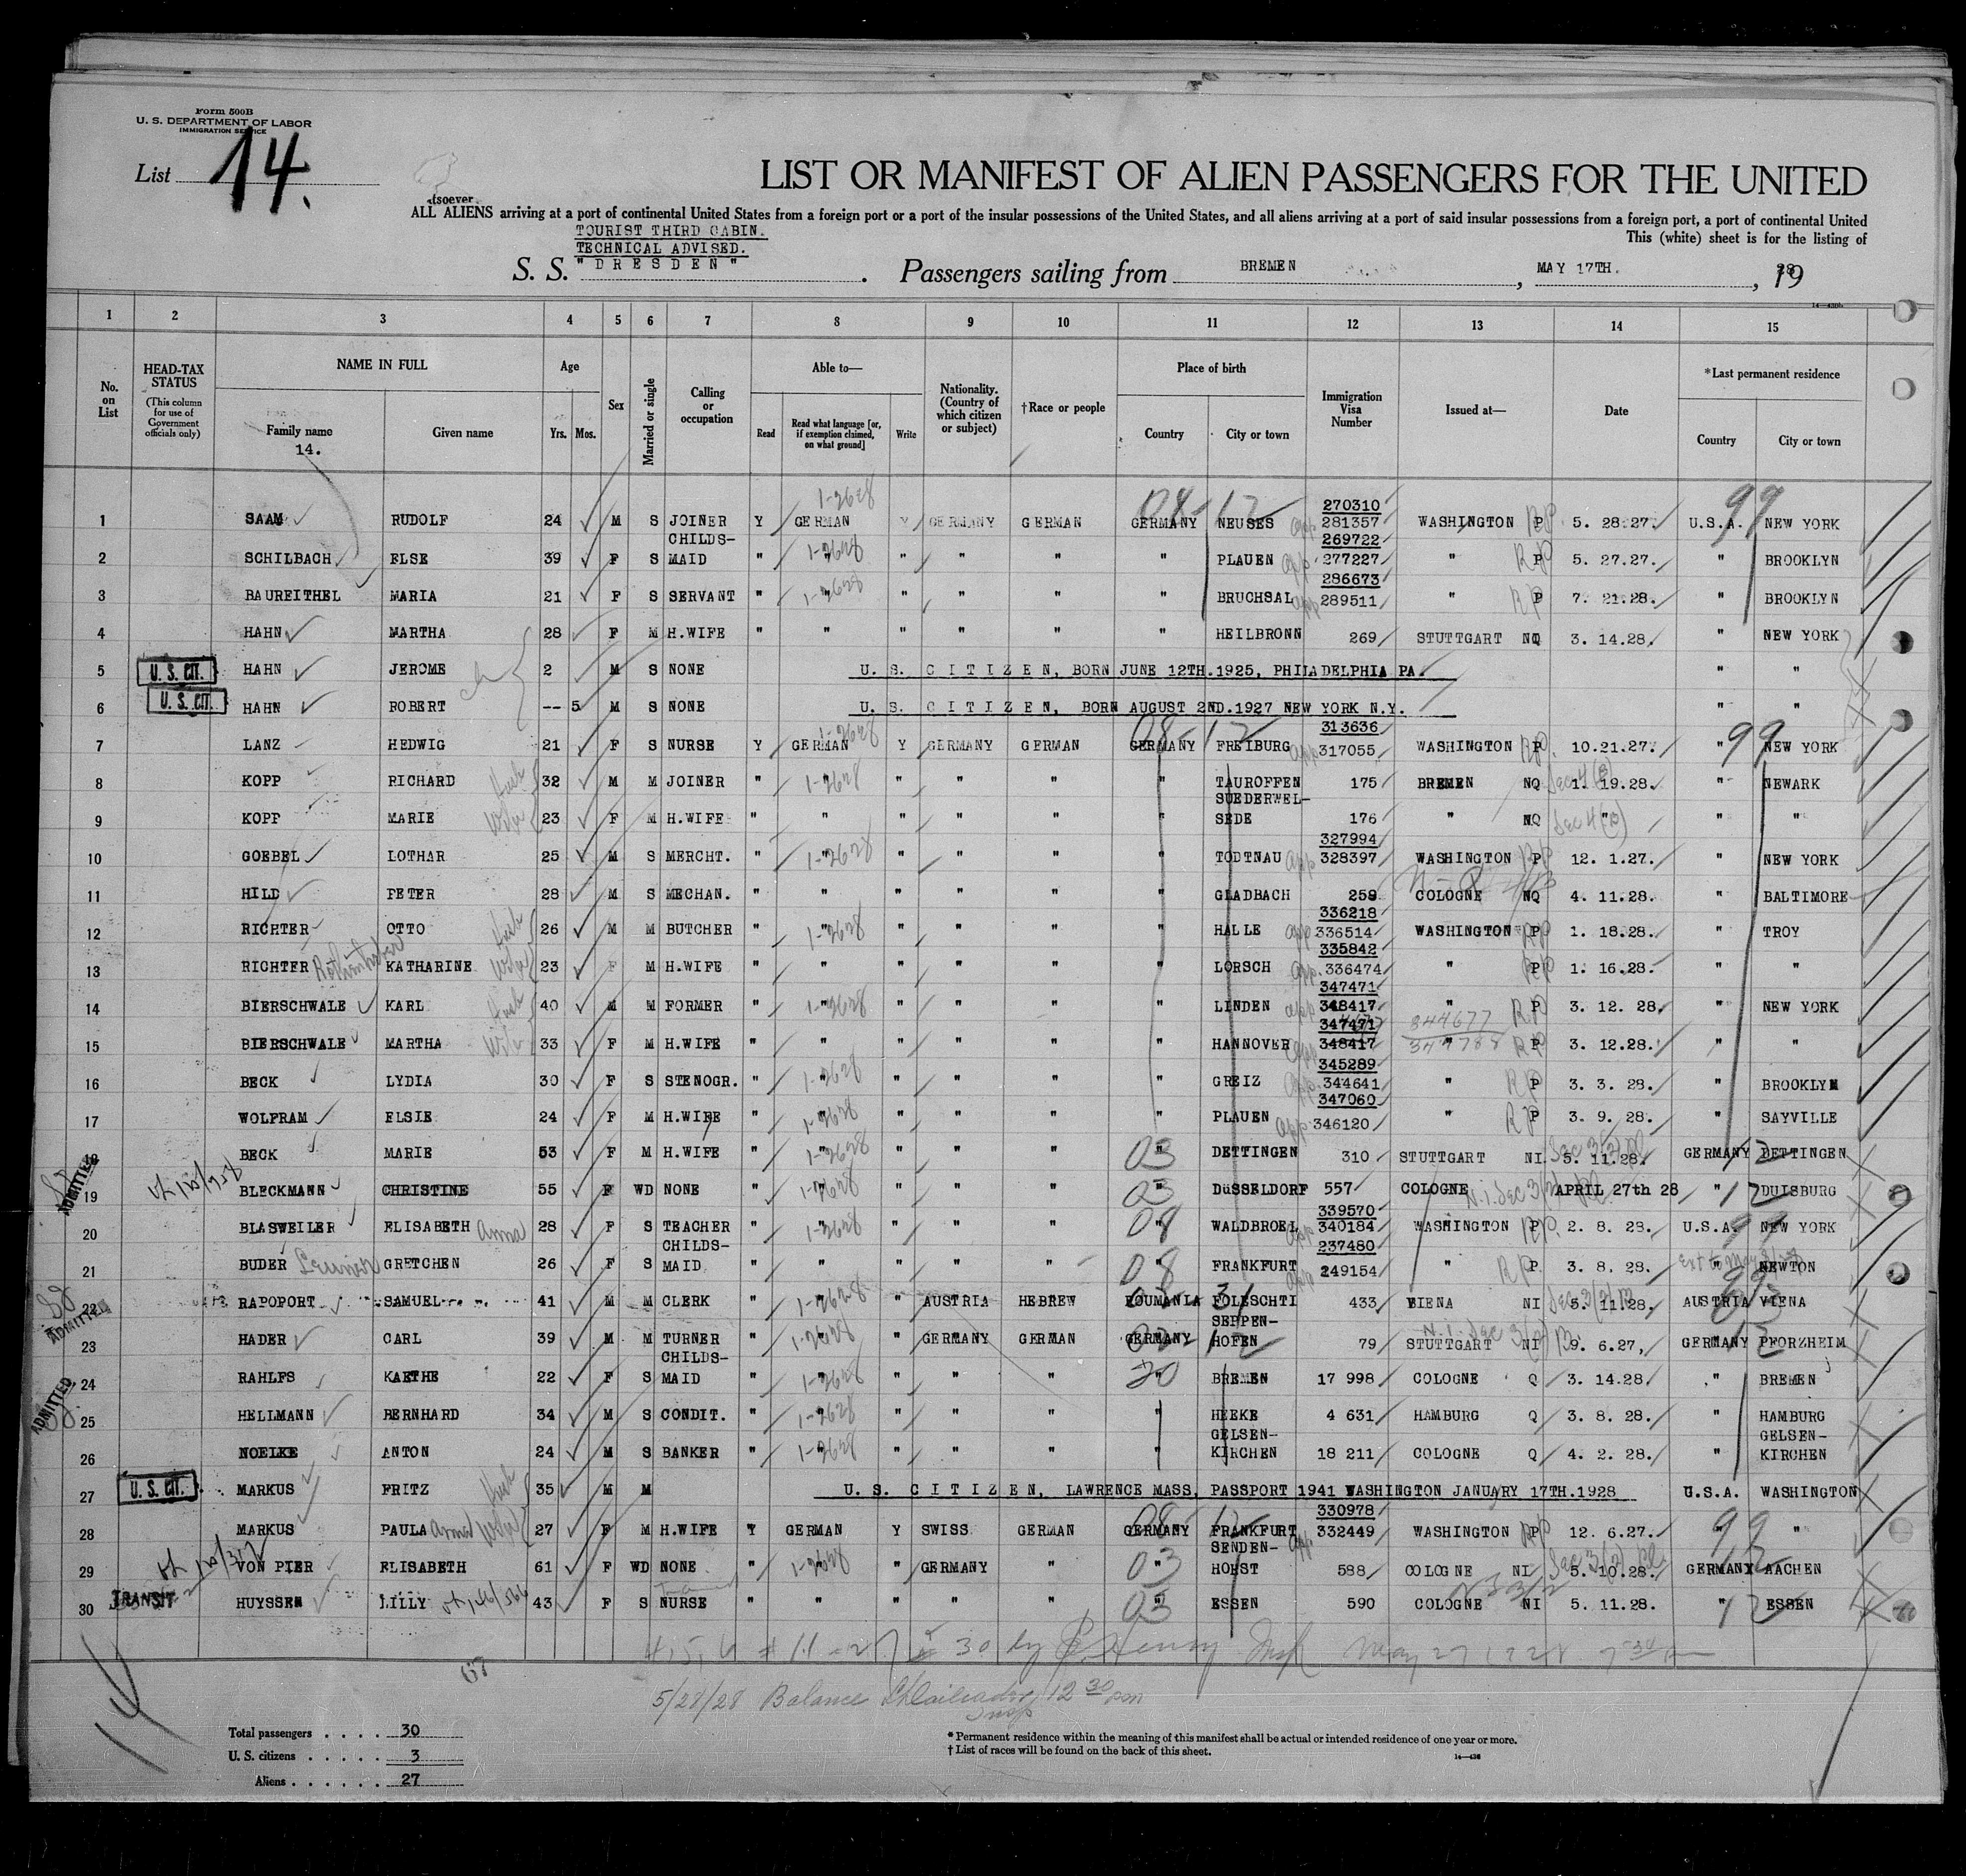 Form 500B
U. S. DEPARTMENT OF LABOR
IMMIGRATION SERVICE
List 14.
LIST OR MANIFEST OF ALIEN PASSENGERS FOR THE UNITED
tsoever
ALL ALIENS arriving at a port of continental United States from a foreign port or a port of the insular possessions of the United States, and all aliens arriving at a port of said insular possessions from a foreign port, a port of continental United
TOURIST THIRD CABIN.
This (white) sheet is for the listing of
TECHNICAL ADVISED.
S. S. "DRESDEN". Passengers sailing from BREMEN, MAY 17TH., 1928
14—430b
1 2 3 4 5 6 7 8 9 10 11 12 13 14 15
No. on List
HEAD-TAX STATUS
(This column for use of Government officials only)
NAME IN FULL
Family name
14.
Given name
Age
Yrs. Mos.
Sex
Married or single
Calling or occupation
Able to—
Read
Read what language [or, if exemption claimed, on what ground]
Write
Nationality. (Country of which citizen or subject)
†Race or people
Place of birth
Country
City or town
Immigration Visa Number
Issued at—
Date
*Last permanent residence
Country
City or town
270310
1 SAAM RUDOLF 24 M S JOINER Y GERMAN Y GERMANY GERMAN GERMANY NEUSES 281357 WASHINGTON RP 5. 28.27. U.S.A. NEW YORK
CHILDS- 269722
2 SCHILBACH ELSE 39 F S MAID " " " " " " PLAUEN 277227 " RP 5. 27.27. " BROOKLYN
286673
3 BAUREITHEL MARIA 21 F S SERVANT " " " " " " BRUCHSAL 289511 " RP 7. 21.28. " BROOKLYN
4 HAHN MARTHA 28 F M H.WIFE " " " " " " HEILBRONN 269 STUTTGART NQ 3. 14.28. " NEW YORK
5 U. S. CIT. HAHN JEROME 2 M S NONE U. S. CITIZEN, BORN JUNE 12TH.1925, PHILADELPHIA PA. " "
6 U. S. CIT. HAHN ROBERT -- 5 M S NONE U. S. CITIZEN, BORN AUGUST 2ND.1927 NEW YORK N.Y. " "
313636
7 LANZ HEDWIG 21 F S NURSE Y GERMAN Y GERMANY GERMAN GERMANY FREIBURG 317055 WASHINGTON RP 10.21.27. " NEW YORK
8 KOPP RICHARD 32 M M JOINER " " " " " " TAUROFFEN 175 BREMEN NQ 1. 19.28. " NEWARK
SUEDERWEL-
9 KOPP MARIE 23 F M H.WIFE " " " " " " SEDE 176 " NQ " " "
327994
10 GOEBEL LOTHAR 25 M S MERCHT. " " " " " " TODTNAU 328397 WASHINGTON RP 12. 1.27. " NEW YORK
11 HILD PETER 28 M S MECHAN. " " " " " " GLADBACH 259 COLOGNE NQ 4. 11.28. " BALTIMORE
336218
12 RICHTER OTTO 26 M M BUTCHER " " " " " " HALLE 336514 WASHINGTON RP 1. 18.28. " TROY
335842
13 RICHTER KATHARINE 23 F M H.WIFE " " " " " " LORSCH 336474 " RP 1. 16.28. " "
347471
14 BIERSCHWALE KARL 40 M M FORMER " " " " " " LINDEN 348417 " RP 3. 12. 28. " NEW YORK
347471 344677
15 BIERSCHWALE MARTHA 33 F M H.WIFE " " " " " " HANNOVER 348417 347788 RP 3. 12.28. " "
345289
16 BECK LYDIA 30 F S STENOGR. " " " " " " GREIZ 344641 " RP 3. 3. 28. " BROOKLYN
347060
17 WOLFRAM ELSIE 24 F M H.WIFE " " " " " " PLAUEN 346120 " RP 3. 9. 28. " SAYVILLE
18 BECK MARIE 53 F M H.WIFE " " " " " DETTINGEN 310 STUTTGART NI 5. 11.28. GERMANY DETTINGEN
19 ADMITTED BLECKMANN CHRISTINE 55 F WD NONE " " " " " " DüSSELDORF 557 COLOGNE APRIL 27th 28 " DUISBURG
339570
20 BLASWEILER ELISABETH Anna 28 F S TEACHER " " " " " " WALDBROEL 340184 WASHINGTON RP 2. 8. 28. U.S.A. NEW YORK
CHILDS- 237480
21 BUDER GRETCHEN 26 F S MAID " " " " " " FRANKFURT 249154 " RP 3. 8. 28. " NEWTON
22 ADMITTED RAPOPORT SAMUEL 41 M M CLERK " " " AUSTRIA HEBREW ROUMANIA FOLESCHTI 433 VIENA NI 5. 11.28. AUSTRIA VIENA
SEPPEN-
23 HADER CARL 39 M M TURNER " " " GERMANY GERMAN GERMANY HOFEN 79 STUTTGART NI 9. 6.27, GERMANY PFORZHEIM
CHILDS-
24 RAHLFS KAETHE 22 F S MAID " " " " " " BREMEN 17 998 COLOGNE Q 3. 14.28. " BREMEN
25 ADMITTED HELLMANN BERNHARD 34 M S CONDIT. " " " " " " HEEKE 4 631 HAMBURG Q 3. 8. 28. " HAMBURG
GELSEN- GELSEN-
26 NOELKE ANTON 24 M S BANKER " " " " " " KIRCHEN 18 211 COLOGNE Q 4. 2. 28. " KIRCHEN
27 U. S. CIT. MARKUS FRITZ 35 M M U. S. CITIZEN, LAWRENCE MASS. PASSPORT 1941 WASHINGTON JANUARY 17TH.1928 U.S.A. WASHINGTON
330978
28 MARKUS PAULA 27 F M H.WIFE Y GERMAN Y SWISS GERMAN GERMANY FRANKFURT 332449 WASHINGTON RP 12. 6.27. " "
SENDEN-
29 VON PIER ELISABETH 61 F WD NONE " " " GERMANY " " HORST 588 COLOGNE NI 5. 10.28. GERMANY AACHEN
30 TRANSIT HUYSSEN LILLY 43 F S NURSE " " " " " ESSEN 590 COLOGNE NI 5. 11.28. " ESSEN
5/28/28 Balance 12 30 pm
Insp
14
Total passengers . . . . 30
U. S. citizens . . . . . 3
Aliens . . . . . . 27
* Permanent residence within the meaning of this manifest shall be actual or intended residence of one year or more.
† List of races will be found on the back of this sheet.